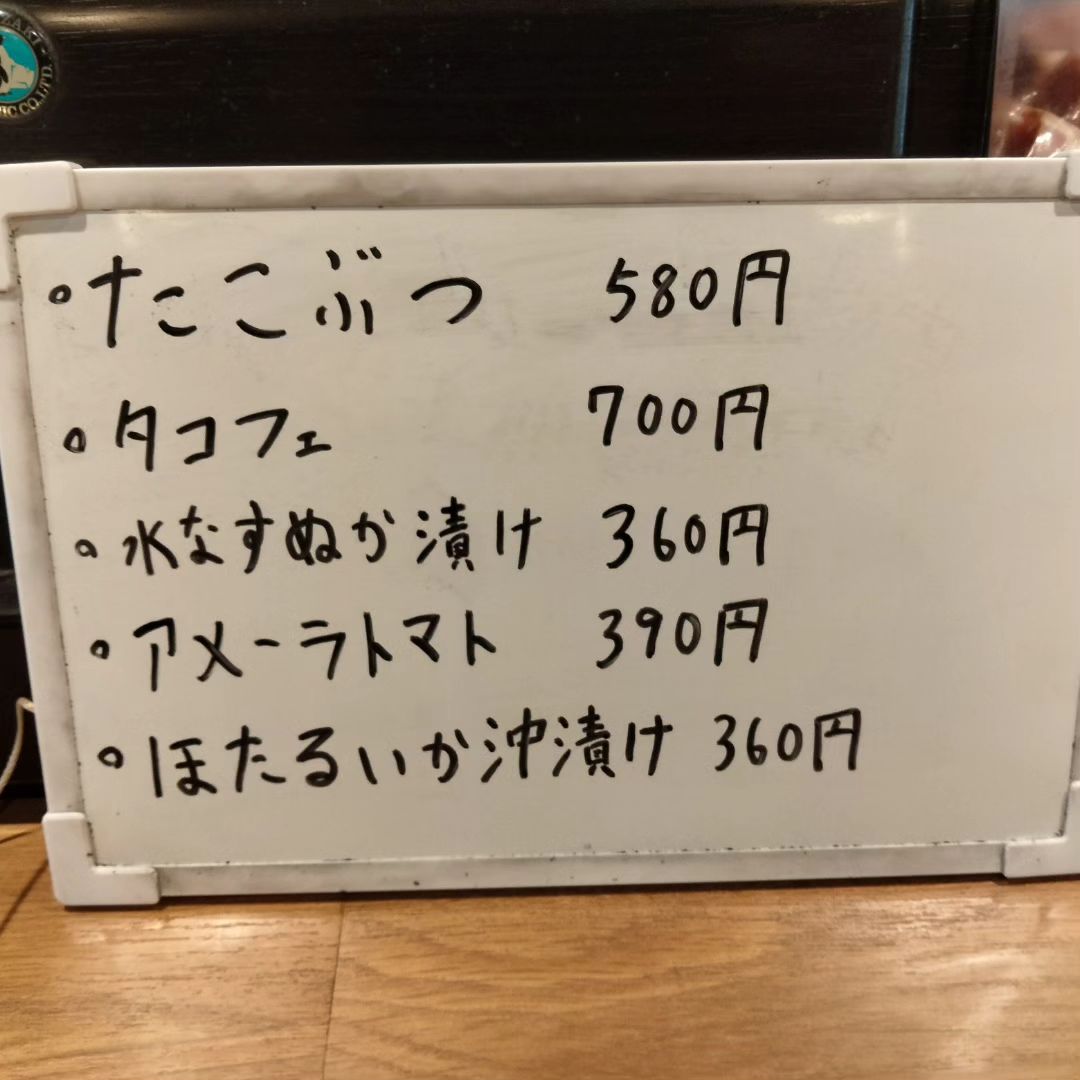 。たこぶつ 580円
。タコフェ 700円
。水なすぬか漬け 360円
。アメーラトマト 390円
。ほたるいか沖漬け 360円